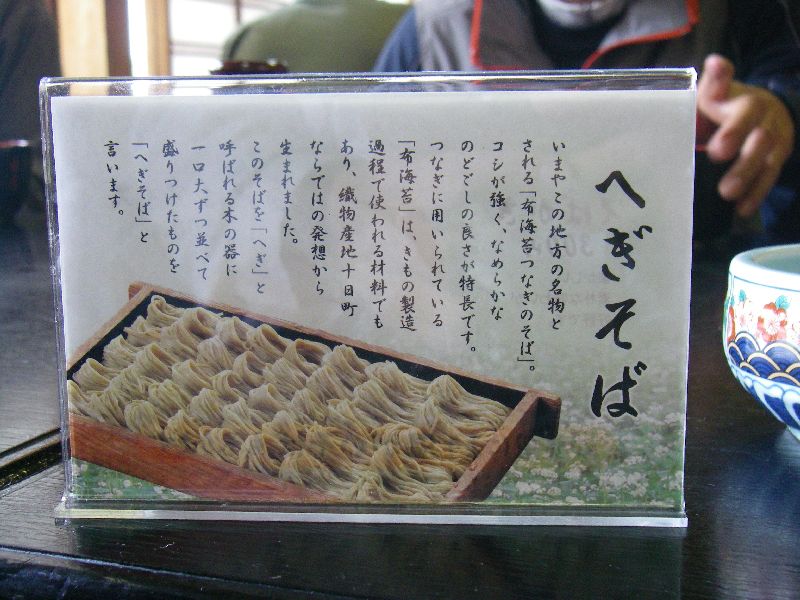 へぎそば
いまやこの地方の名物と
される「布海苔つなぎのそば」。
コシが強く、なめらかな
のどごしの良さが特長です。
つなぎに用いられている
「布海苔」は、きもの製造
過程で使われる材料でも
あり、織物産地十日町
ならではの発想から
生まれました。
このそばを「へぎ」と
呼ばれる木の器に
一口大ずつ並べて
盛りつけたものを
「へぎそば」と
言います。